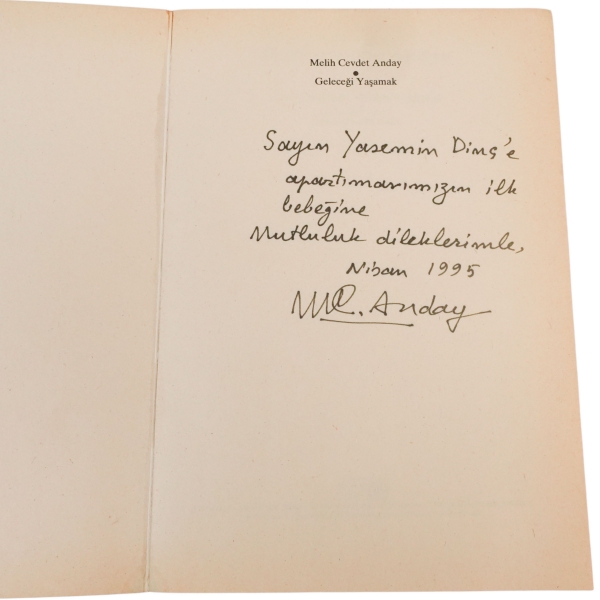 Melih Cevdet Anday
●
Geleceği Yaşamak
Sayın Yasemin Dinç'e
apartımanımızın ilk
bebeğine
Mutluluk dileklerimle,
Nisan 1995
MC. Anday